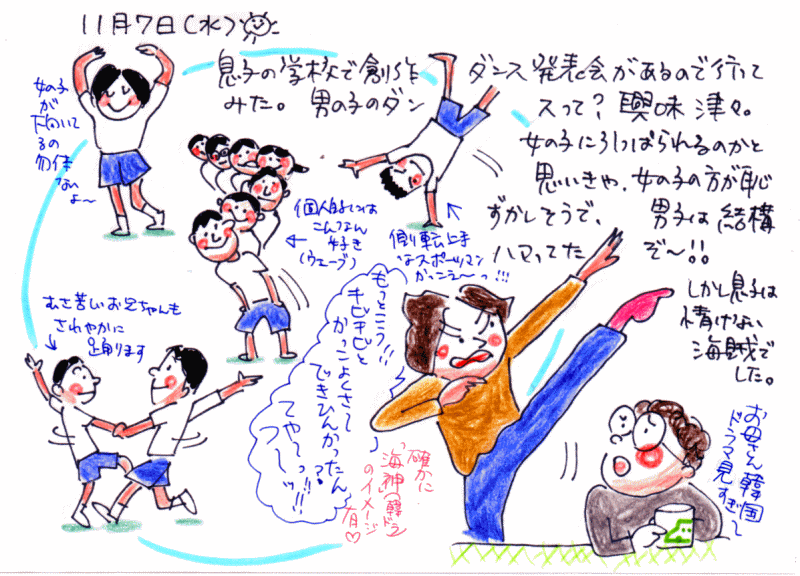 11月7日(水)
息子の学校で創作ダンス発表会があるので行って
みた。男の子のダンスって?興味津々。
女の子にひっぱられるのかと
思いきや、女の子の方が恥
ずかしそうで、男子は結構
ハマってたぞ〜!!
しかし息子は
情けない
海賊で
した。
女の子
が
下向いて
るの
勿体
ないよ〜
個人的には
こんなん
好き
(ウェーブ)
側転上手
なスポーツマン
がっこえ〜っ!!!
むさ苦しいお兄ちゃんも
さわやかに
踊ります
もっとこう!!
キビキビと
かっこよくさ〜
できひんかったん
?
てや〜っ!!
つ〜ッ!!
確かに
「海神」(韓ドラ)
のイメージ
有♡
お母さん韓国
ドラマ見
すぎ〜